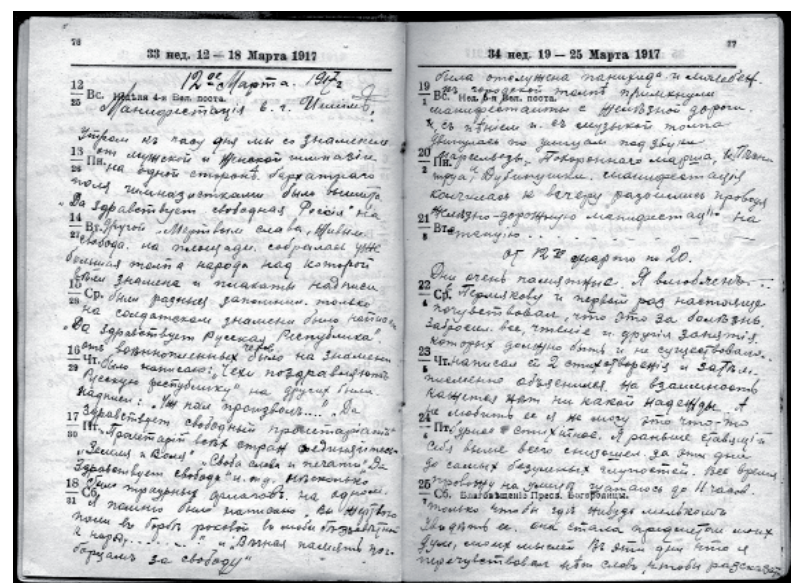 76
33 нед. 12 — 18 Марта 1917
12ое Марта. 1917 г
12
25
Вс. Недѣля 4-я Вел. поста.
Манифестація в г. Ишимѣ.
Утром къ часу дня мы со знаменем
13
26
Пн.
от мужской и женской гимназіи
на одной сторонѣ бархатнаго
поля гимназистками было вышито
„Да здравствует свободная Россія" на
14
27
Вт.
другой „Мертвым слава, живым
свобода. на площади собралась уже
большая толпа народа над которой
15
28
Ср.
знамена и плакаты надписи
были разныя запомнил только
на солдатском знамени было
„Да здравствует Русская Республика".
16
29
Чт.
от военнопленных чехов на знамени
было написано: „Чехи поздравляют
Русскую республику" на других были
надписи: „Уж пал произвол...." „Да
17
30
Пт.
здравствует свободный пролетаріат"
„Пролетаріи всѣх стран соединяйтесь"
„Земля и Воля" „Свобода слова и печати" „Да
здравствует свобода" и. т.д. нѣсколько
18
31
Сб.
было траурных флагов. на одном
я помню было написано „Вы жертвою
пали в борьбѣ роковой в любви беззавѣтной
к народу........" и „Вѣчная память
борцам за свободу"
77
34 нед. 19 — 25 Марта 1917
была отслужена панихида и молебен
19
1
Вс. Нед. 5-я Вел. поста.
къ городской толпѣ примкнули
манифестанты с желѣзной дороги
и съ пѣніем и съ музыкой толпа
двинулась по улицам под звуки
20
2
Пн.
марсельезы, Похороннаго марша,
Дубинушки. манифестація
кончилась к вечеру разошлись проводя
21
3
Вт.
желѣзно-дорожную манифестацію на
станцію.
от 12го марта по 20.
Дни очень памятные. Я влюблен...
22
4
Ср.
в Пермякову и первый раз настояще
почувствовал, что это за болѣзнь.
забросил все, чтеніе и другія занятія.
которых должно быть и не существовало.
23
5
Чт.
написал ей 2 стихотворенія и затѣм
письменно объяснился. На взаимность
кажется нѣт ни какой надежды. А
не любить ее я не могу это что-то
24
6
Пт.
бурное стихійное. Я раньше ставящій
себя выше всего снизошел за эти дни
до самых безумных глупостей. Все время
провожу на улицѣ шатаюсь до 11 часов
25
7
Сб. Благовѣщеніе Пресв. Богородицы.
только чтобы гдѣ нибудь мелькомъ
увидѣть ее. она стала предметом моих
дум, моих мыслей Въ эти дни что я
перечувствовал нѣт слов, чтобы разсказать